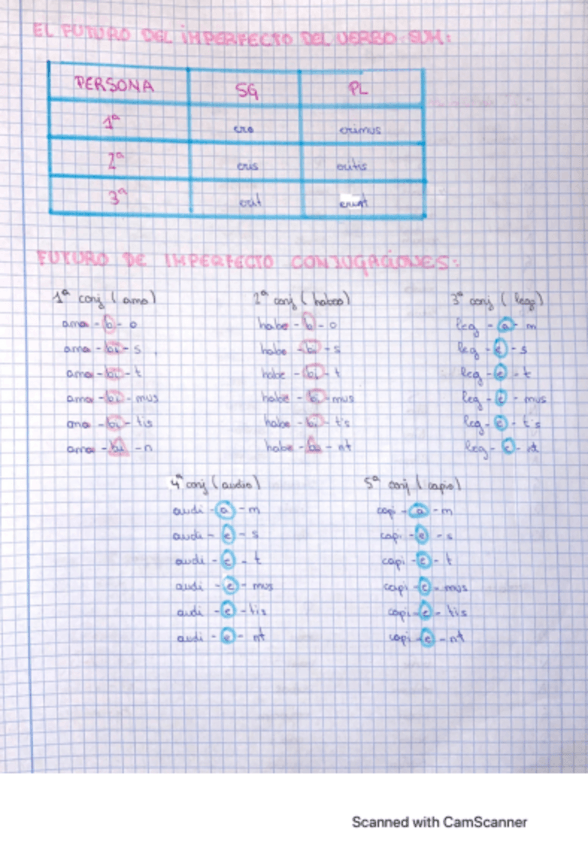 EL FUTURO DEL IMPERFECTO DEL VERBO SUM:
PERSONA SG PL
1ª ero erimus
2ª eris eritis
3ª erit erunt
FUTURO DE IMPERFECTO CONJUGACIONES:
1ª conj (amo) 2ª conj (habeo) 3ª conj (lego)
ama - b - o habe - b - o leg - a - m
ama - bi - s habe - bi - s leg - e - s
ama - bi - t habe - bi - t leg - e - t
ama - bi - mus habe - bi - mus leg - e - mus
ama - bi - tis habe - bi - tis leg - e - tis
ama - bu - n habe - bu - nt leg - e - nt
4ª conj (audio) 5ª conj (capio)
audi - a - m capi - a - m
audi - e - s capi - e - s
audi - e - t capi - e - t
audi - e - mus capi - e - mus
audi - e - tis capi - e - tis
audi - e - nt capi - e - nt
Scanned with CamScanner